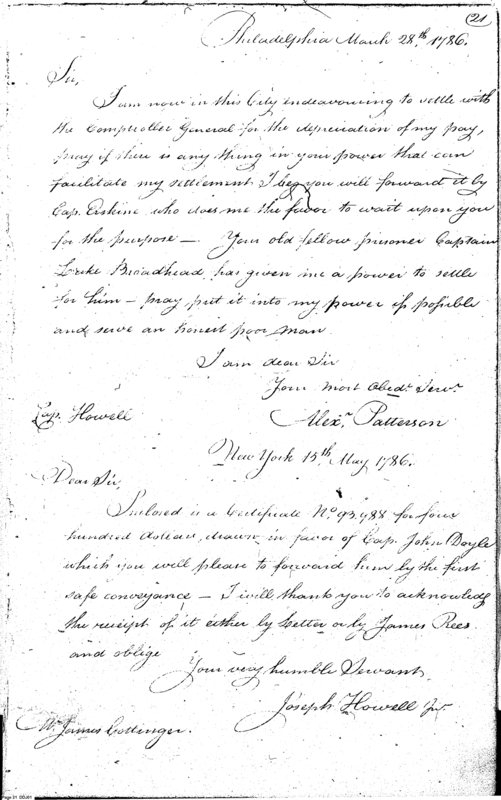 (21)
Philadelphia March 28th. 1786.
Sir,
I am now in this City endeavouring to settle with
the Comptroller General for the depreciation of my pay,
pray if there is any thing in your power that can
facilitate my settlement I beg you will forward it by
Cap. Erskine who does me the favor to wait upon you
for the purpose — Your old fellow prisoner Captain
Luke Broadhead has given me a power to settle
for him — pray put it into my power if possible
and serve an honest poor man
I am dear Sir
Your most Obedt. Servt.
Cap. Howell
Alexr. Patterson
New York 15th. May 1786.
Dear Sir,
Inclosed is a Certificate No. 93,988 for four
hundred dollars, drawn in favor of Cap. John Doyle
which you will please to forward him by the first
safe conveyance — I will thank you to acknowledge
the receipt of it either by Letter or by James Rees
and oblige
Your very humble Servant,
Joseph Howell Jur.
Mr. James Cottinger.